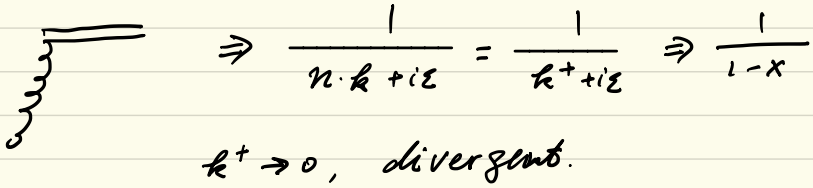 ⇒ 1/(n·k + iε) = 1/(k⁺ + iε) ⇒ 1/(1-x)
k⁺ → 0, divergent.